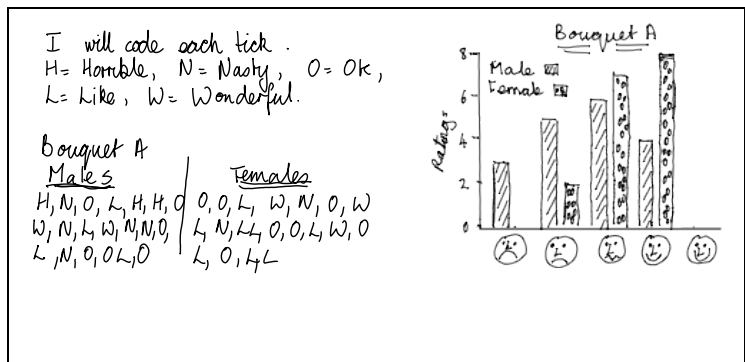 I will code each tick.
H = Horrible, N = Nasty, O = OK,
L = Like, W = Wonderful.
Bouquet A
Males
H, N, O, L, H, H, O
W, N, L, W, N, N, O,
L, N, O, O L, O
Females
O, O, L, W, N, O, W
L, N, L, L, O, O, L, W, O
L, O, L, L
Bouquet A
Male
Female
Ratings
8
6
4
2
0